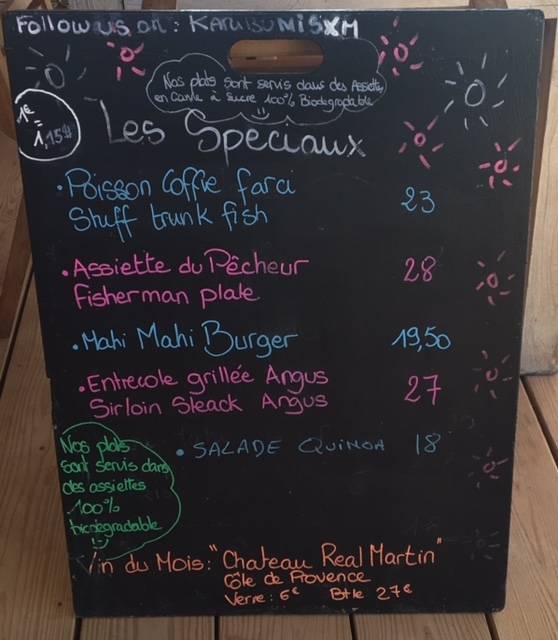 Follow us on : KARIBUNISXM
Nos plats sont servis dans des Assiettes
en Canne à Sucre 100% Biodegradable
:)
1€
=
1,15$
Les Speciaux
• Poisson Coffre farci 23
Stuff trunk fish
• Assiette du Pêcheur 28
Fisherman plate
• Mahi Mahi Burger 19,50
• Entrecote grillée Angus 27
Sirloin Steack Angus
• SALADE QUINOA 18
Nos plats
sont servis dans
des assiettes
100%
biodegradable
:)
Vin du Mois: "Chateau Real Martin"
Côte de Provence
Verre : 6€ Btle 27€